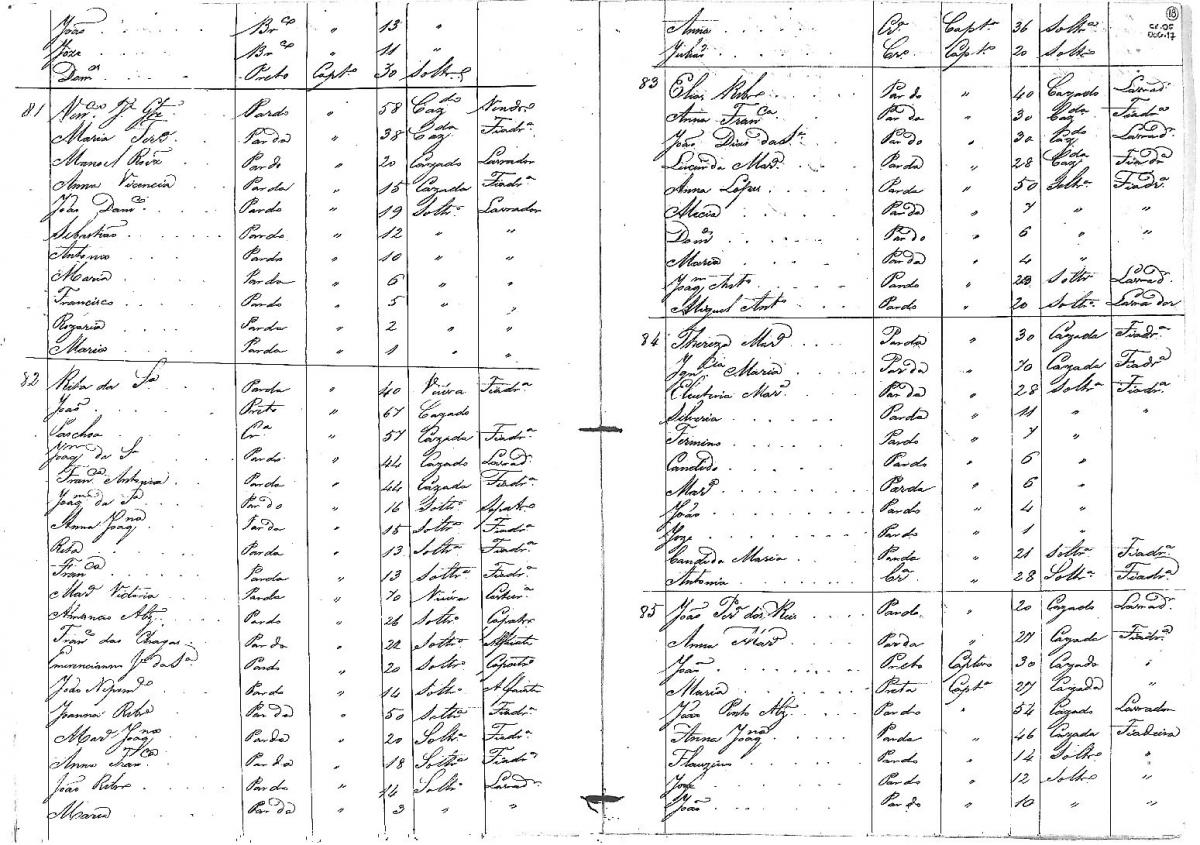 João Brco " 13 "
Joze Brco " 11 "
Domos Preto Capto 30 Soltro
81 Pardo " 58 Cazdo
Maria Parda " 38 Cazda Fiadra
Manoel Pardo " 20 Cazado Lavrador
Anna Vicencia Parda " 15 Cazada Fiadra
João Pardo " 19 Soltro Lavrador
Sebastião Pardo " 12 " "
Antonio Pardo " 10 " "
Maria Parda " 6 " "
Francisco Pardo " 5 " "
Rozaria Parda " 2 " "
Maria Parda " 1 " "
82 Rita da Sa Parda " 40 Viúva Fiadra
João Preto " 67 Cazado
Paschoa Cra " 57 Cazada Fiadra
Joaqm da Sa Pardo " 44 Cazado Lavrad
Franca Antonia Parda " 44 Cazada Fiadra
Joaqm da Sa Pardo " 16 Soltro
Anna Joaqna Parda " 15 Soltra Fiadra
Rita Parda " 13 Soltra Fiadra
Franca Parda " 13 Soltra Fiadra
Mara Victoria Parda " 70 Viúva
Alz Pardo " 26 Soltro
Franco das Chagas Pardo " 22 Soltro
Pardo " 20 Soltro
João Pardo " 14 Soltro
Joanna Ribro Parda " 50 Soltra Fiadra
Mara Joaqna Parda " 20 Soltra Fiadra
Anna Franca Parda " 18 Soltra Fiadra
João Ribro Pardo " 14 Soltro Lavrador
Maria Parda " 3 " "
18
Anna Cra Capta 36 Soltra
Cro Capto 20 Soltro
83 Elias Ribro Pardo " 40 Cazado Lavrad
Anna Franca Parda " 30 Cazda Fiadra
João Dias da Sa Pardo " 30 Cazdo Lavrad
Mara Parda " 28 Cazda Fiadra
Anna Lopes Parda " 50 Soltra Fiadra
Parda " 7 " "
Domos Pardo " 6 " "
Maria Parda " 4 "
Joaqm Anto Pardo " 23 Soltro Lavrad
Miguel Anto Pardo " 20 Soltro Lavrador
84 Thereza Mara Parda " 30 Cazada Fiadra
Igncia Maria Parda " 70 Cazada Fiadra
Mara Parda " 28 Soltra Fiadra
Silveria Parda " 11 " "
Fermino Pardo " 7 "
Candido Pardo " 6 "
Mara Parda " 6 "
João Pardo " 4 "
Joze Pardo " 1 "
Candida Maria Parda " 21 Soltra Fiadra
Antonia Cra " 28 Soltra Fiadra
85 João dos Reis Pardo " 20 Cazado Lavrador
Anna Mara Parda " 27 Cazada Fiadra
João Preto Captivo 30 Cazado "
Maria Preta Capta 27 Cazada "
João Pinto Alz Pardo " 54 Cazado Lavrador
Anna Joaqna Parda " 46 Cazada Fiadeira
Pardo " 14 Soltro "
Joze Pardo " 12 Soltro "
João Pardo " 10 " "